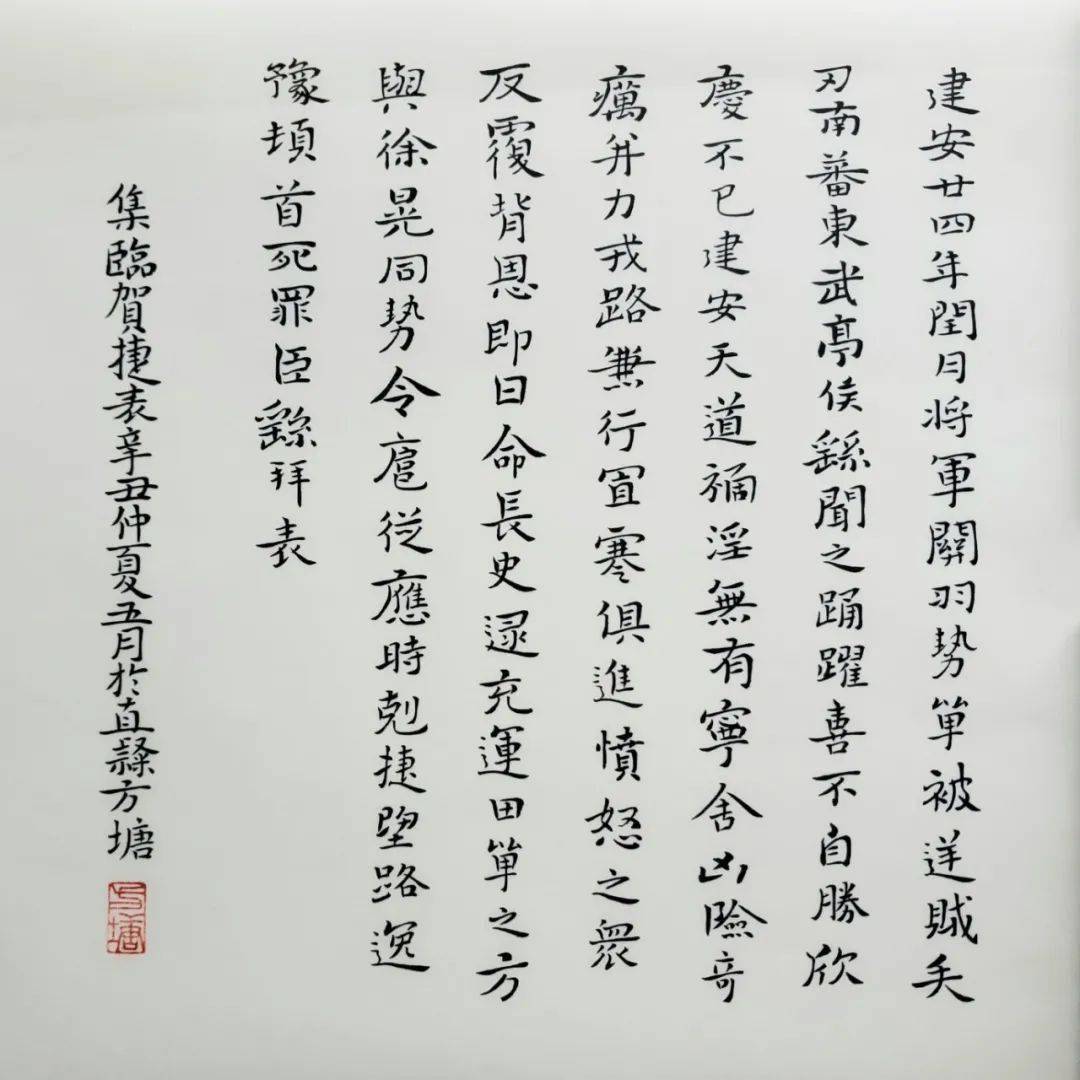 建安廿四年閏月将軍關羽势單被逆賊矢
刃南蕃東武亭侯繇聞之踊躍喜不自勝欣
慶不已建安天道禍淫無有寧舍凶險奇
癘并力戎路兼行置寒俱進憤怒之衆
反覆背恩即日命長史逯充運田單之方
與徐晃同势令扈從應時剋捷堕路逸
豫頓首死罪臣繇拜表
集臨賀捷表辛丑仲夏五月於直隸方塘
方塘